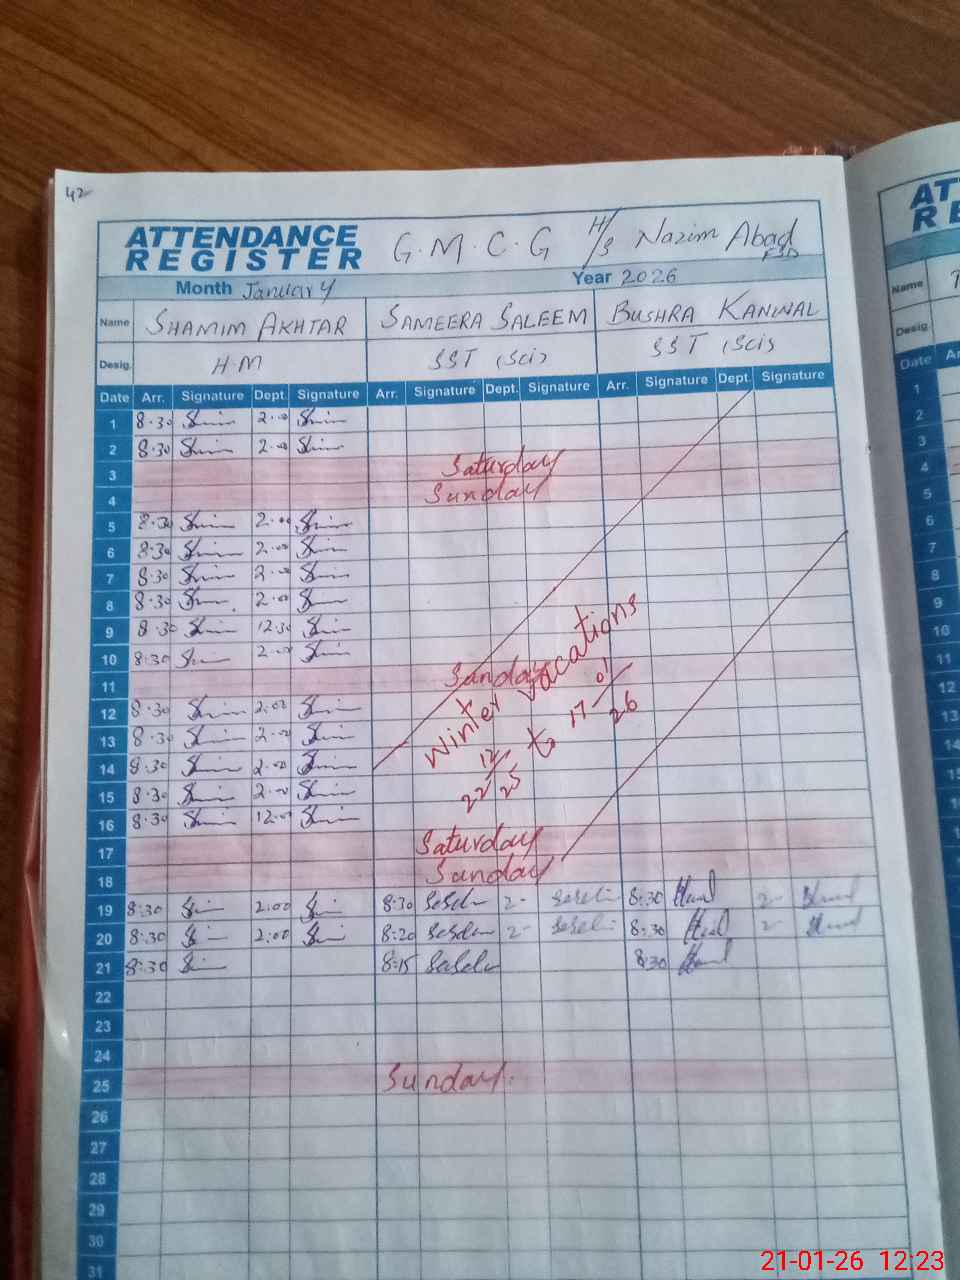 42
ATTENDANCE REGISTER G.M.C.G H/S Nazim Abad FSD
Month January Year 2026
Name SHAMIM AKHTAR SAMEERA SALEEM BUSHRA KANWAL
Desig. H.M SST (Sci) SST (Sci)
Date Arr. Signature Dept. Signature Arr. Signature Dept. Signature Arr. Signature Dept. Signature
1 8.30 2.00
2 8.30 2.00
3 Saturday
4 Sunday
5 8.30 2.00
6 8.30 2.00
7 8.30 2.00
8 8.30 2.00
9 8.30 12.30
10 8:30 2.00
11 Sunday
12 8.30 2.00
13 8.30 2.00
14 8.30 2.00
15 8.30 2.00
16 8.30 12.00
Winter Vacations
22/12/25 to 17/01/26
17 Saturday
18 Sunday
19 8:30 2:00 8:30 2- 8:30 2-
20 8:30 2:00 8:20 2- 8:30 2-
21 8:30 8:15 8:30
22
23
24
25 Sunday.
26
27
28
29
30
31
AT
RE
Name
Desig.
Date Ar
1
2
3
4
5
6
7
8
9
10
11
12
13
14
15
21-01-26 12:23